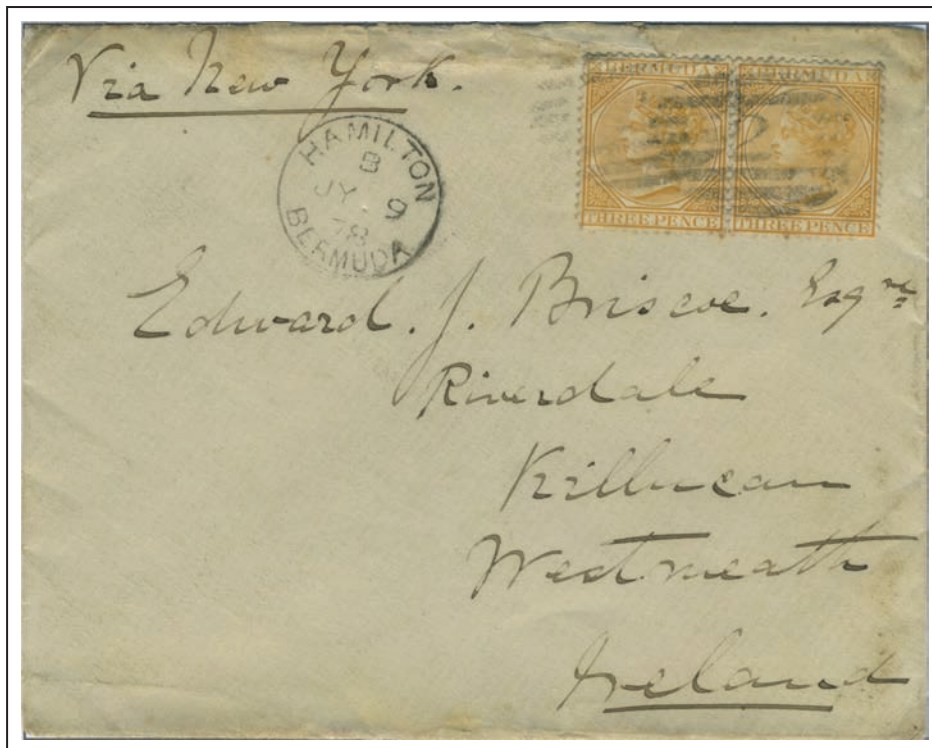 Via New York.
BERMUDA BERMUDA
THREE PENCE THREE PENCE
HAMILTON
B
JY 9
78
BERMUDA
Edward. J. Briscoe. Esqre
Riverdale
Killucan
Westmeath
Ireland